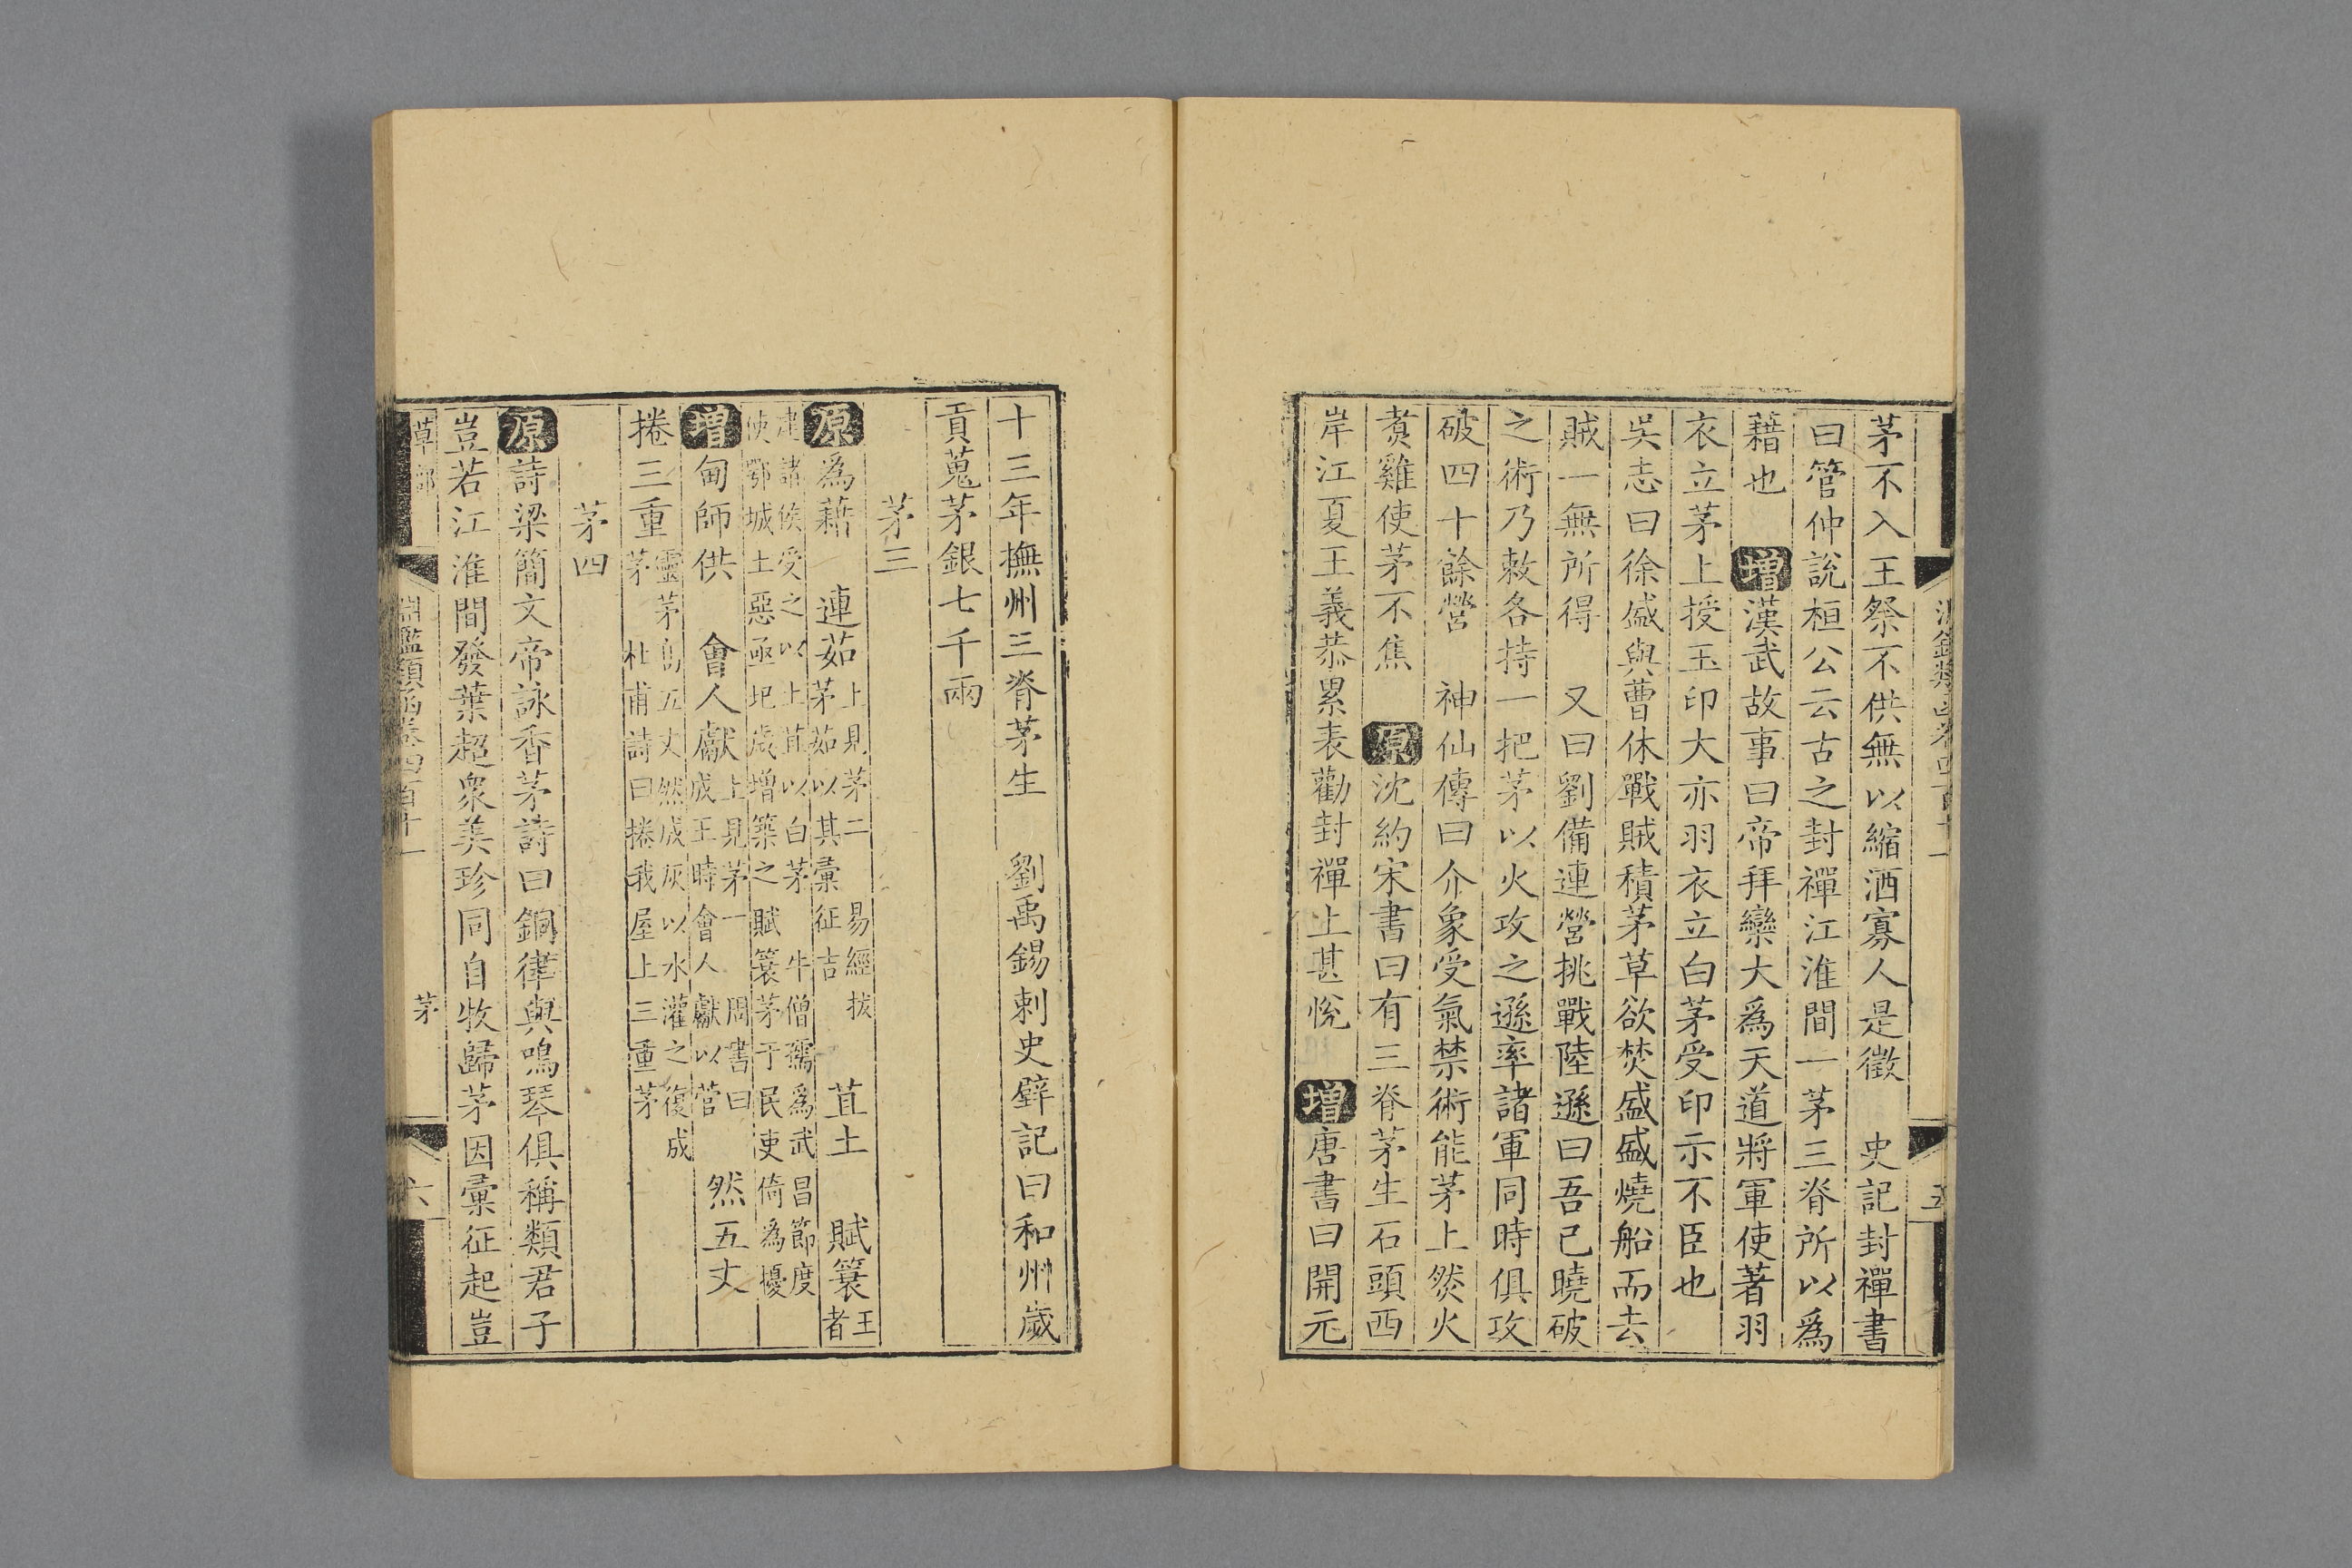 茅不入王祭不供無以縮酒寡人是徵　史記封禪書
曰管仲說桓公云古之封禪江淮間一茅三脊所以爲
藉也　增漢武故事曰帝拜欒大爲天道將軍使著羽
衣立茅上授玉印大亦羽衣立白茅受印示不臣也
吳志曰徐盛與曹休戰賊積茅草欲焚盛盛燒船而去
賊一無所得　又曰劉備連營挑戰陸遜曰吾已曉破
之術乃敕各持一把茅以火攻之遜率諸軍同時俱攻
破四十餘營　神仙傳曰介象受氣禁術能茅上然火
煑雞使茅不焦　原沈約宋書曰有三脊茅生石頭西
岸江夏王義恭累表勸封禪上甚悅　增唐書曰開元
十三年撫州三脊茅生　劉禹錫刺史壁記曰和州歲
貢蒐茅銀七千兩
茅三
原爲藉　連茹上見茅二　易經拔茅茹以其彙征吉　苴土　賦簑王者
建諸侯受之以土苴以白茅　牛僧孺爲武昌節度使鄂城土惡亟圯歲增築之賦簑茅于民吏倚爲擾
增甸師供　會人獻上見茅一　周書曰成王時會人獻以菅　然五丈
捲三重靈茅高五丈然成灰以水灌之復成茅　杜甫詩曰捲我屋上三重茅
茅四
原詩梁簡文帝詠香茅詩曰銅律與鳴琴俱稱類君子
豈若江淮間發葉超衆美珍同自牧歸茅因彙征起豈
草部　淵鑑類函卷四百十一　茅　六